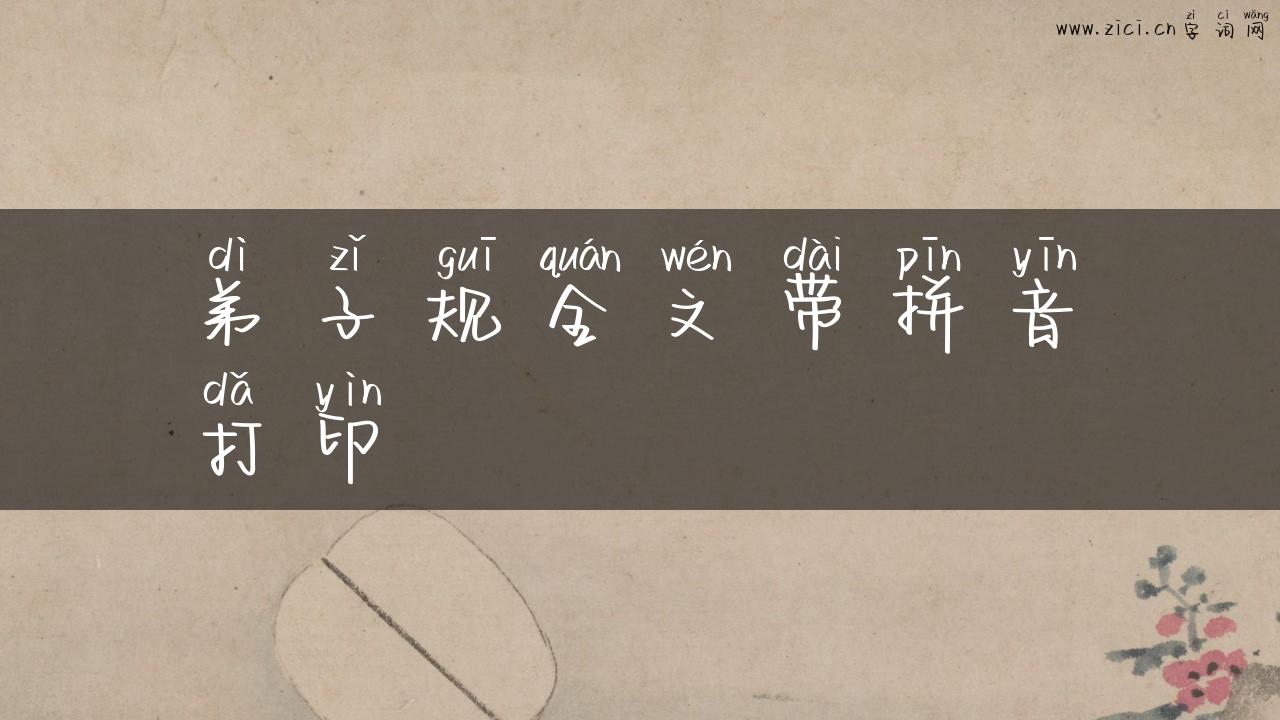 zì cí wǎng
www.zici.cn 字词网
dì zǐ guī quán wén dài pīn yīn
弟子规全文带拼音
dǎ yìn
打印